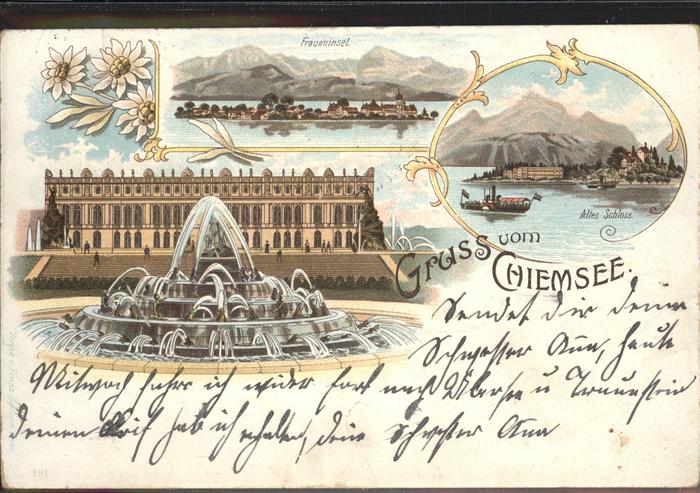 Fraueninsel.
Altes Schloss.
Gruss vom
Chiemsee.
Sendet dir deine
Schwester Anna, heute
Mittwoch fahre ich wider fort nach Übersee u Traunstein
deinen Brief hab ich erhalten, deine Schwester Anna
191